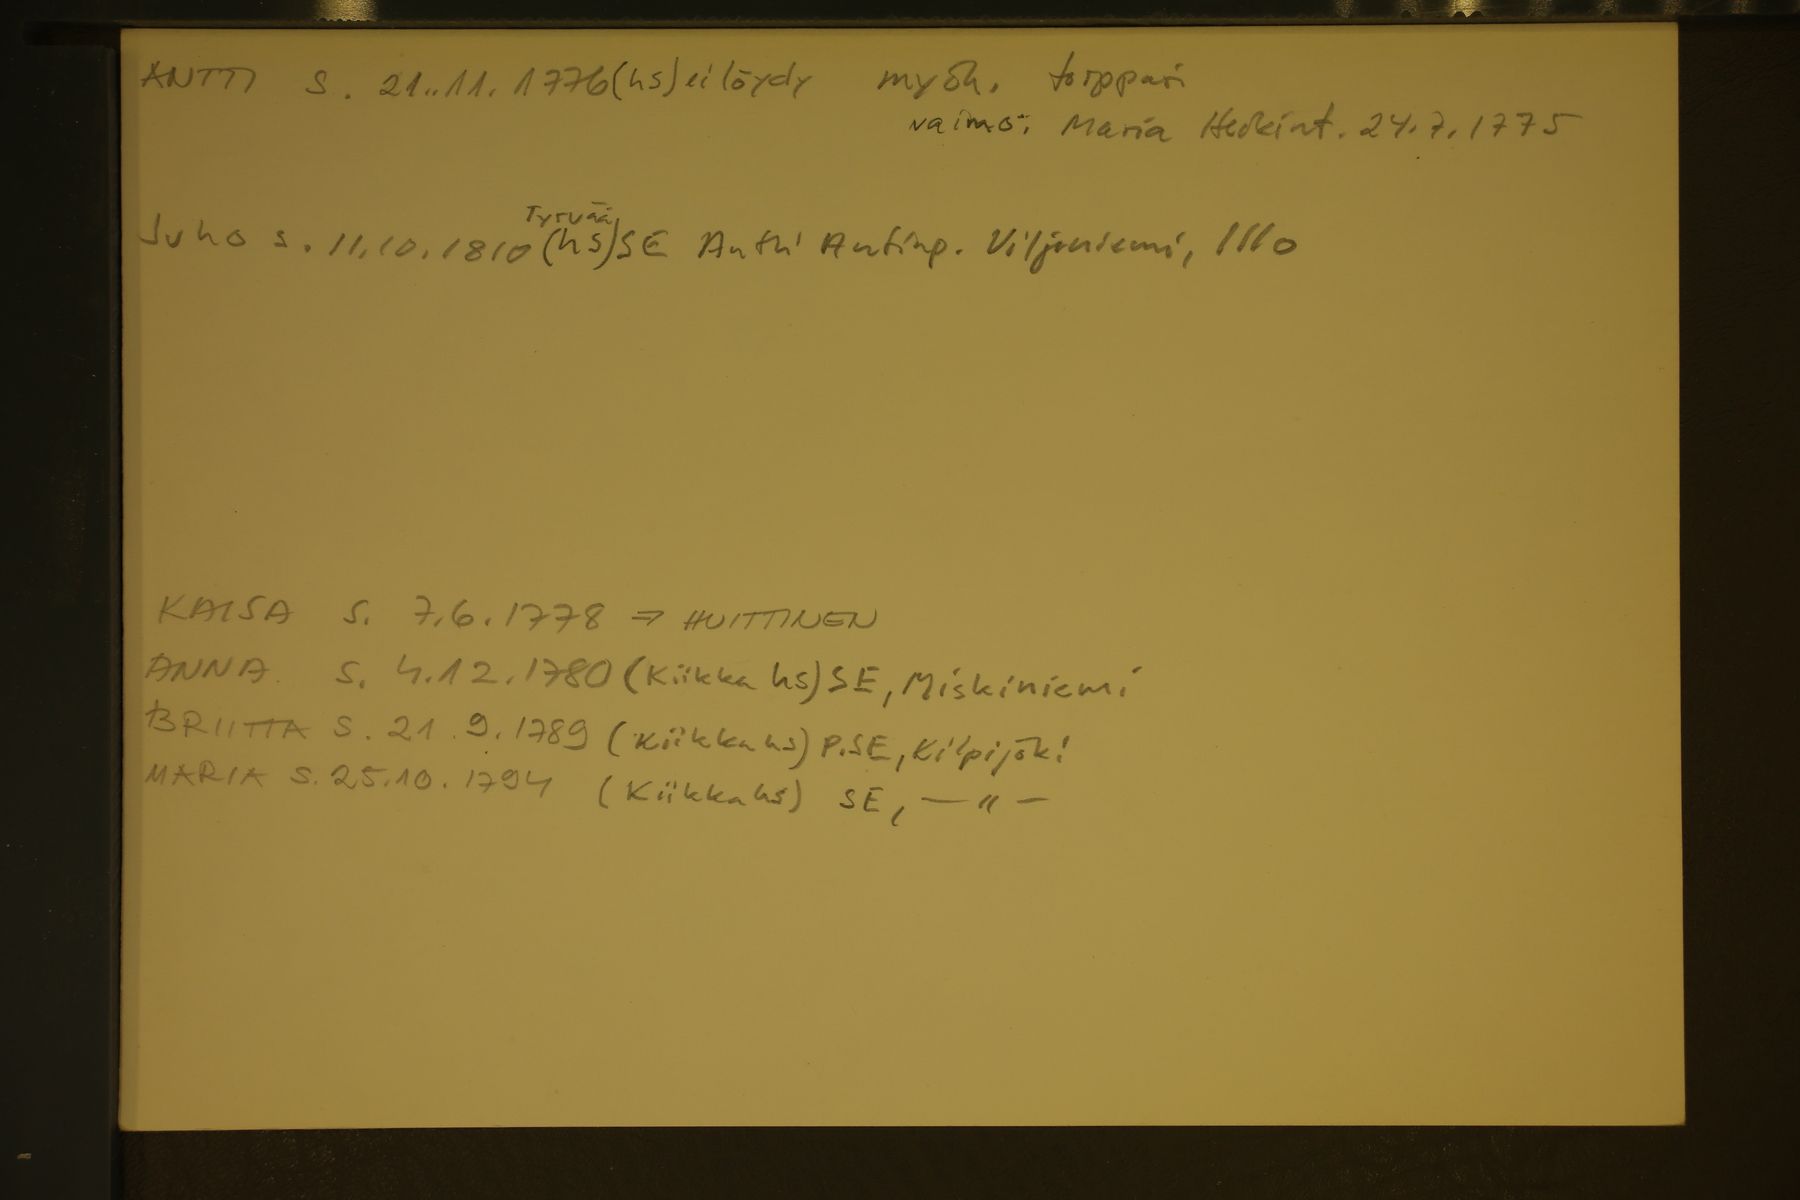 ANTTI s. 21.11.1776 (hs) ei löydy myöh. torppari
vaimo: Maria Heikint. 24.7.1775
Tyrvää
Juho s. 11.10.1810 (hs) SE Antti Antinp. Viljaniemi, Illo
KAISA s. 7.6.1778 => HUITTINEN
ANNA s. 4.12.1780 (Kiikka hs) SE, Miskiniemi
BRIITTA s. 21.9.1789 (Kiikka hs) P.SE, Kilpijoki
MARIA s. 25.10.1794 (Kiikka hs) SE, — " —